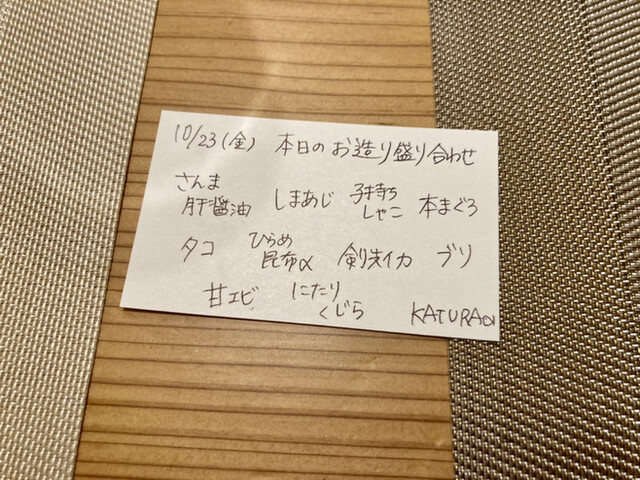 10/23(金) 本日のお造り盛り合わせ
さんま しまあじ 子持ち 本まぐろ
肝醤油 しゃこ
タコ ひらめ 剣先イカ ブリ
昆布〆
甘エビ にたり
くじら
KATURAα